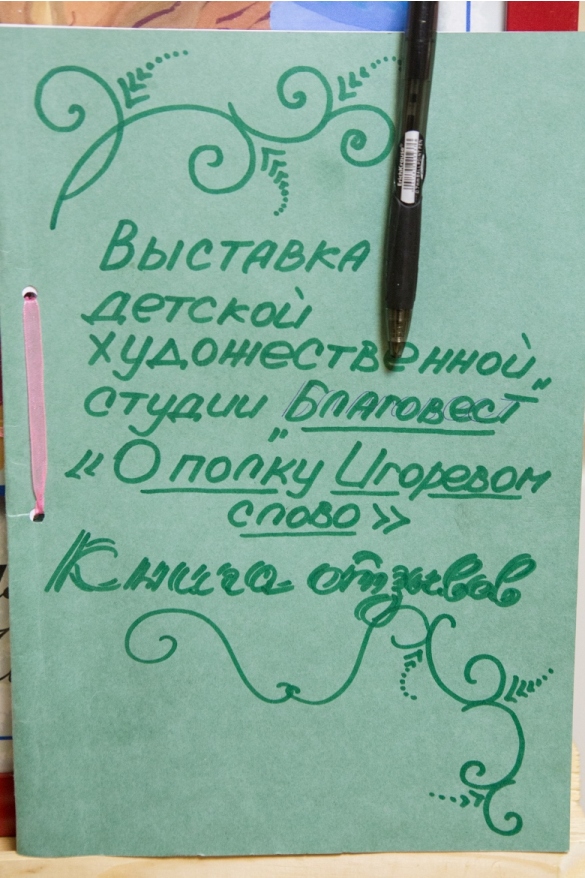 Выставка
детской
художественной
студии "Благовест"
« О полку Игоревом
слово »
Книга отзывов